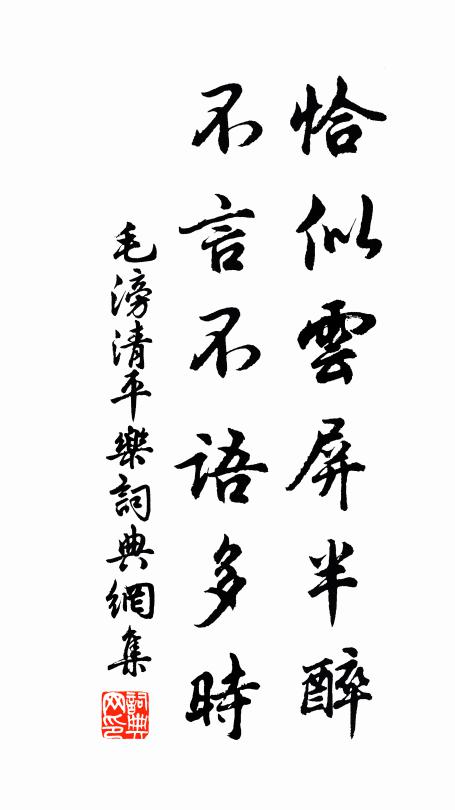 恰似雲屏半醉
不言不語多時
毛滂清平樂詞典網集
詞典網印